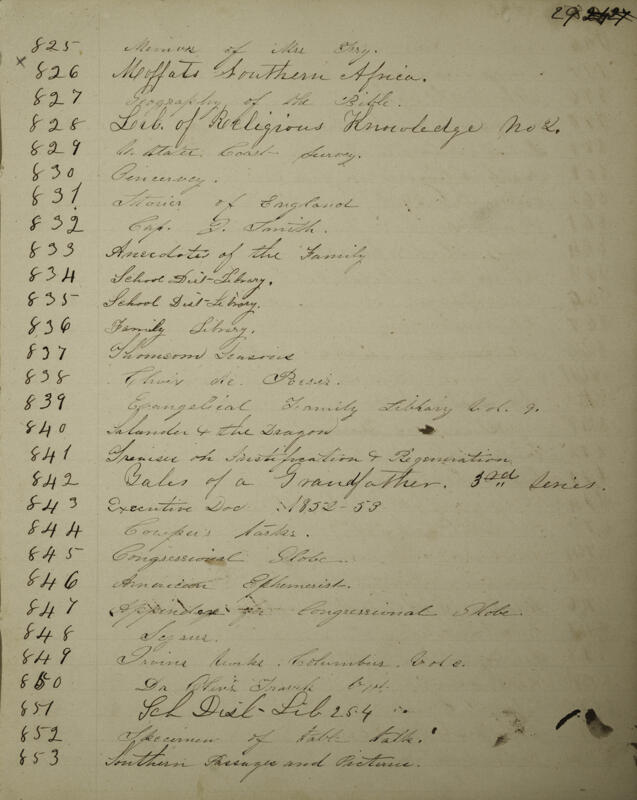 29
825 Memoir of Mrs Fry.
x 826 Moffats Southern Africa.
827 Geography of the Bible.
828 Lib. of Religious Knowledge No 2.
829 Coast Survey.
830
831 Stories of England
832 Cap. Smith.
833 Anecdotes of the Family
834 School Dist-Library.
835 School Dist-Library.
836 Family Library.
837 Thomsom Seasons
838
839 Evangelical Family Library Vol. 9.
840 Salander & the Dragon
841 Treatise on Justification & Regeneration
842 Tales of a Grandfather. 3rd Series.
843 Executive Doc 1852-53
844 Cowper's tasks.
845 Congressional Globe
846 American Ephemerist.
847 Appendix for Congressional Globe
848
849 Irvins Works. Columbus. Vol
850 Da Travels
851 Sch Dist-Lib 254
852 Specimen of table talk.
853 Southern Passages and Pictures.